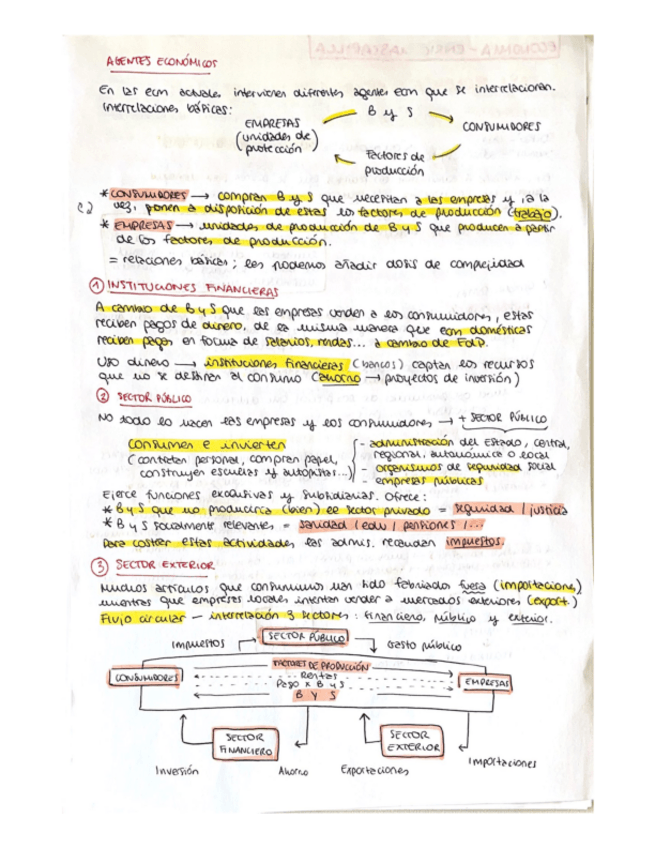 AGENTES ECONÓMICOS
En las ecm actuales intervienen diferentes agentes ecm que se interrelacionan.
Interrelaciones básicas:
B y S
EMPRESAS
(unidades de
protección
CONSUMIDORES
Factores de
producción
* CONSUMIDORES → compran B y S que necesitan a las empresas y, a la
vez, ponen a disposición de estas los factores de producción (trabajo).
* EMPRESAS → unidades de producción de B y S que producen a partir
de los factores de producción.
= relaciones básicas; les podemos añadir dosis de complejidad
① INSTITUCIONES FINANCIERAS
A cambio de B y S que las empresas venden a los consumidores, estas
reciben pagos de dinero, de la misma manera que ecm domésticas
reciben pagos en forma de salarios, rentas... a cambio de FdP.
Uso dinero → instituciones financieras (bancos) captan los recursos
que no se destinan al consumo (ahorro → proyectos de inversión)
② SECTOR PÚBLICO
No todo lo hacen las empresas y los consumidores → + SECTOR PÚBLICO
Consumen e invierten
(contratan personal, compran papel,
construyen escuelas y autopistas...)
- administración del Estado, central,
regional, autonómica o local
- organismos de seguridad social
- empresas públicas
Ejerce funciones exclusivas y subsidiarias. Ofrece:
* B y S que no produciría (bien) el sector privado = seguridad / justicia
* B y S socialmente relevantes = sanidad / edu / pensiones / ...
Para costear estas actividades las admis. recaudan impuestos.
③ SECTOR EXTERIOR
Muchos artículos que consumimos han sido fabricados fuera (importaciones)
mientras que empresas locales intentan vender a mercados exteriores (export.)
Flujo circular — interrelación 3 sectores: financiero, público y exterior.
Impuestos
SECTOR PÚBLICO
Gasto público
CONSUMIDORES
FACTORES DE PRODUCCIÓN
Rentas
Pago x B y S
B Y S
EMPRESAS
SECTOR
FINANCIERO
SECTOR
EXTERIOR
Inversión
Ahorro
Exportaciones
Importaciones